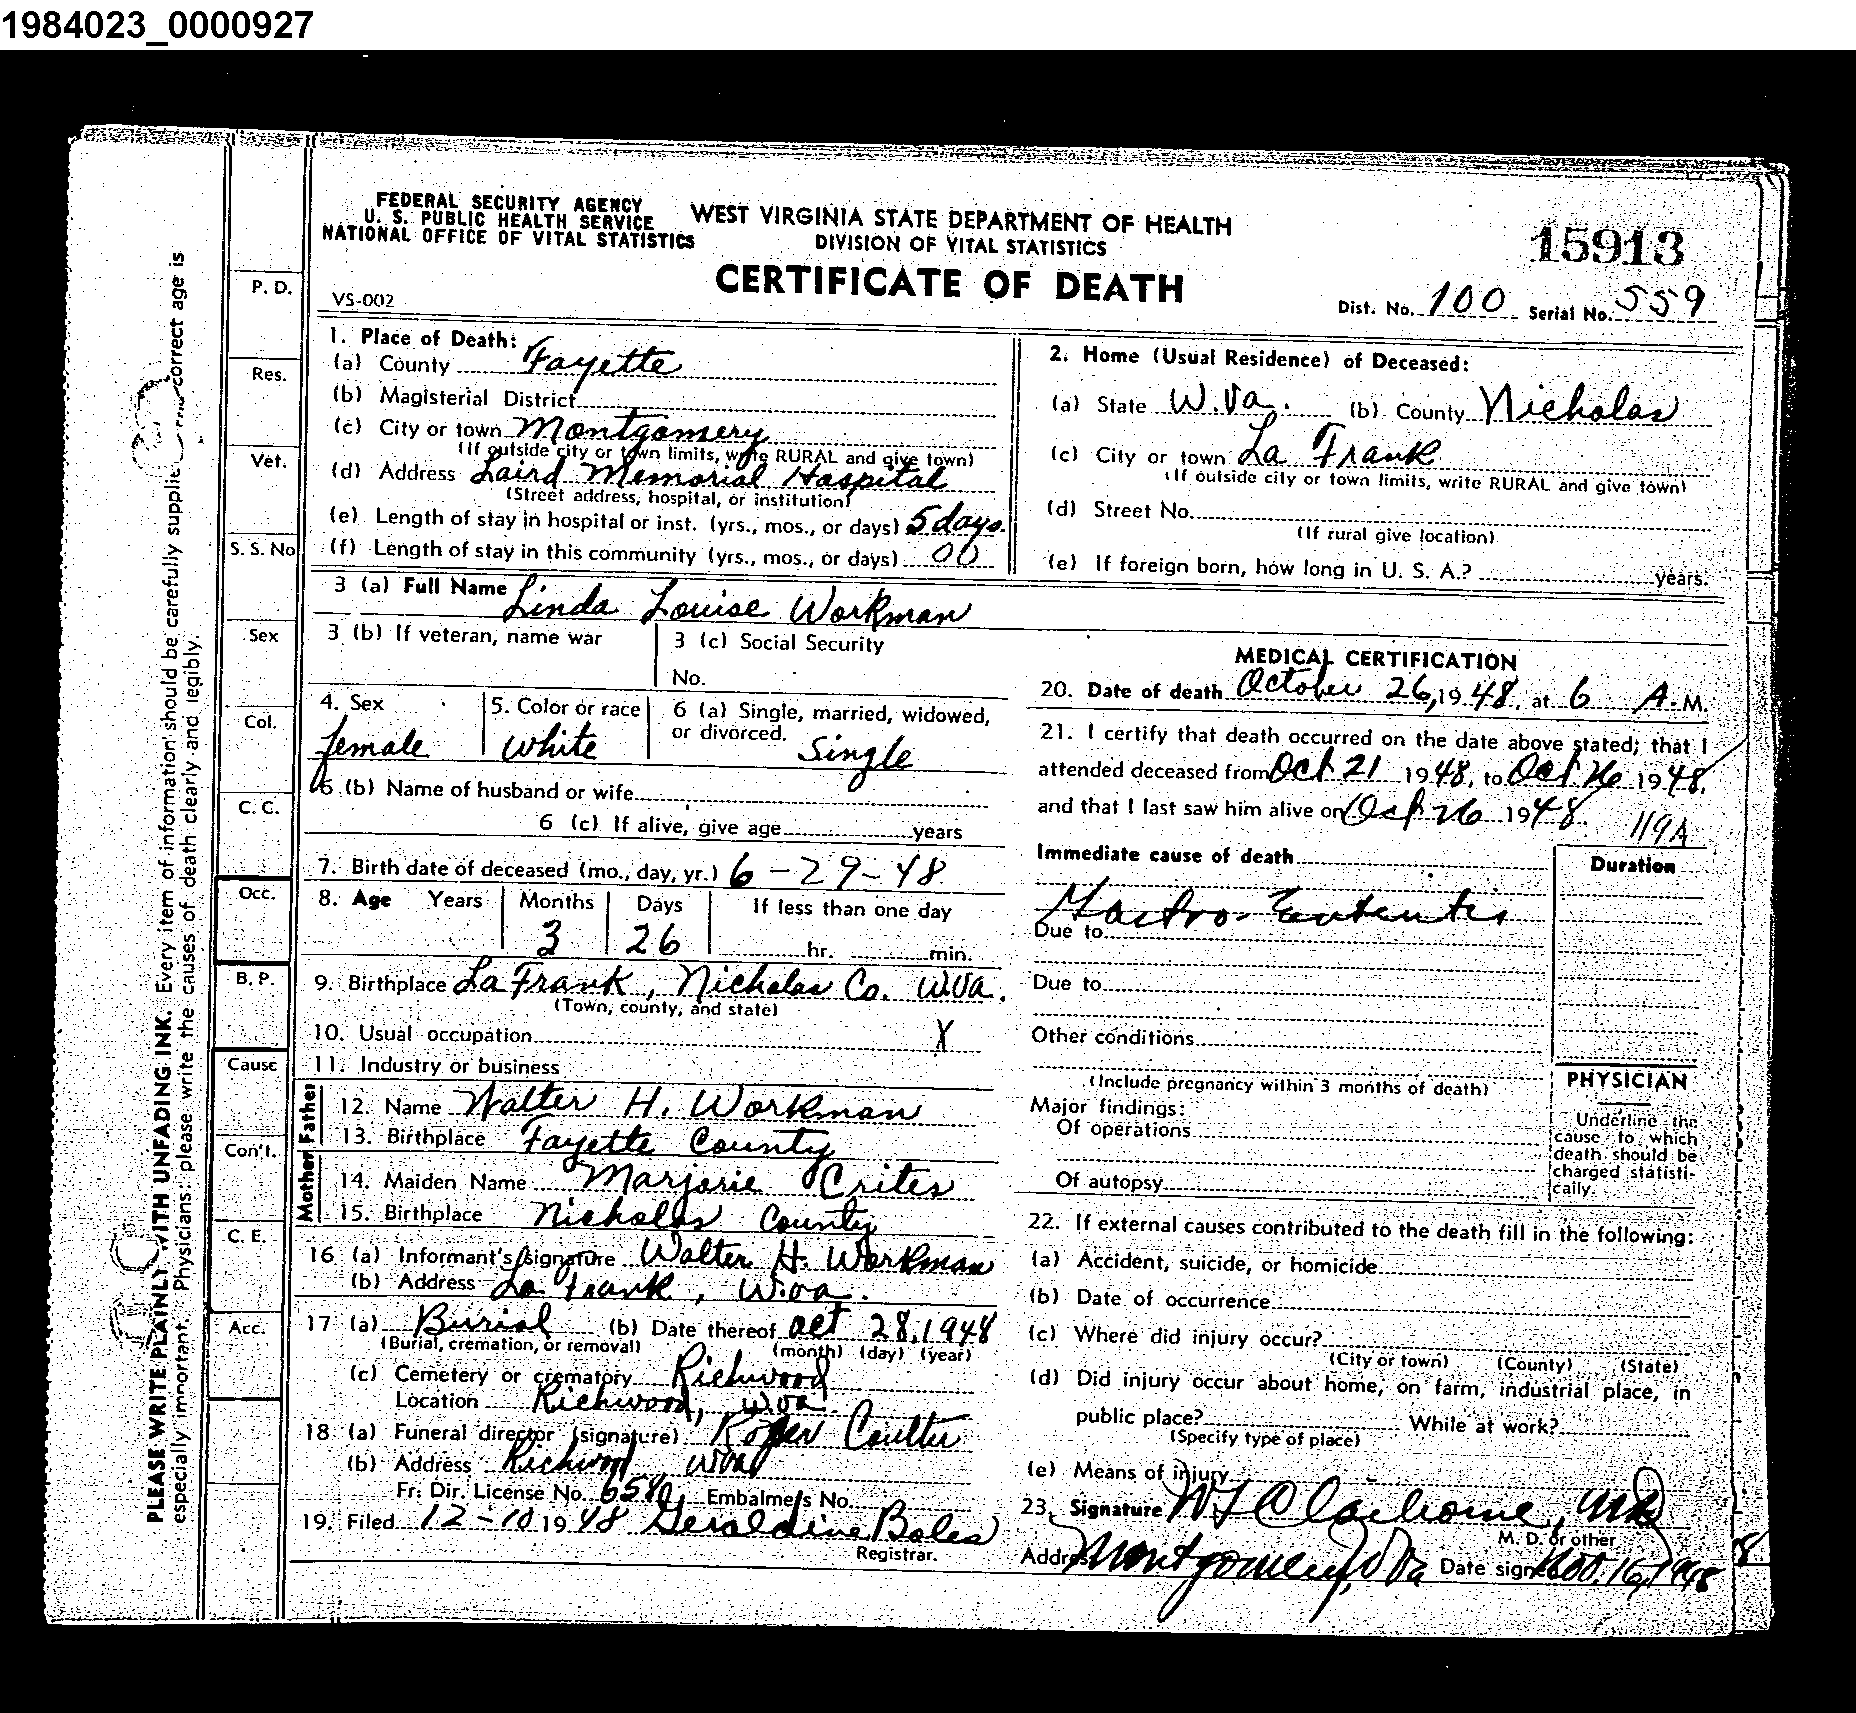 1984023_0000927
FEDERAL SECURITY AGENCY
U. S. PUBLIC HEALTH SERVICE
NATIONAL OFFICE OF VITAL STATISTICS
WEST VIRGINIA STATE DEPARTMENT OF HEALTH
DIVISION OF VITAL STATISTICS
CERTIFICATE OF DEATH
15913
VS-002
Dist. No. 100 Serial No. 559
PLEASE WRITE PLAINLY WITH UNFADING INK. Every item of information should be carefully supplied correct age is
especially important. Physicians: please write the causes of death clearly and legibly.
P. D.
Res.
Vet.
S. S. No
Sex
Col.
C. C.
Occ.
B. P.
Cause
Con't.
C. E.
Acc.
1. Place of Death:
(a) County Fayette
(b) Magisterial District
(c) City or town Montgomery
(If outside city or town limits, write RURAL and give town)
(d) Address Laird Memorial Hospital
(Street address, hospital, or institution)
(e) Length of stay in hospital or inst. (yrs., mos., or days) 5 days.
(f) Length of stay in this community (yrs., mos., or days) 00
2. Home (Usual Residence) of Deceased:
(a) State W.Va. (b) County Nicholas
(c) City or town La Frank
(If outside city or town limits, write RURAL and give town)
(d) Street No.
(If rural give location)
(e) If foreign born, how long in U. S. A.? years.
3 (a) Full Name Linda Louise Workman
3 (b) If veteran, name war
3 (c) Social Security
No.
4. Sex
female
5. Color or race
White
6 (a) Single, married, widowed,
or divorced. Single
6 (b) Name of husband or wife
6 (c) If alive, give age years
7. Birth date of deceased (mo., day, yr.) 6-29-48
8. Age Years Months Days If less than one day
3 26 hr. min.
9. Birthplace La Frank, Nicholas Co. W.Va.
(Town, county, and state)
10. Usual occupation X
11. Industry or business
Father
12. Name Walter H. Workman
13. Birthplace Fayette County
Mother
14. Maiden Name Marjorie Crites
15. Birthplace Nicholas County
16 (a) Informant's signature Walter H. Workman
(b) Address La Frank, W.Va.
17 (a) Burial (b) Date thereof Oct 28, 1948
(Burial, cremation, or removal) (month) (day) (year)
(c) Cemetery or crematory Richwood
Location Richwood, W.Va.
18 (a) Funeral director (signature) Roger Coulter
(b) Address Richwood WVa
Fr. Dir. License No. 6580 Embalmer's No.
19. Filed 12-10 1948 Geraldine Boles
Registrar.
MEDICAL CERTIFICATION
20. Date of death October 26, 1948, at 6 A.M.
21. I certify that death occurred on the date above stated; that I
attended deceased from Oct 21 1948, to Oct 26 1948,
and that I last saw him alive on Oct 26 1948.
119A
Immediate cause of death
Duration
Gastro-Enteritis
Due to
Due to
Other conditions
(Include pregnancy within 3 months of death)
Major findings:
Of operations
Of autopsy
PHYSICIAN
Underline the
cause to which
death should be
charged statisti-
cally.
22. If external causes contributed to the death fill in the following:
(a) Accident, suicide, or homicide
(b) Date of occurrence
(c) Where did injury occur?
(City or town) (County) (State)
(d) Did injury occur about home, on farm, industrial place, in
public place? While at work?
(Specify type of place)
(e) Means of injury
23. Signature W F Claiborne, MD
M. D. or other
Address Montgomery, W Va Date signed Nov. 16, 1948